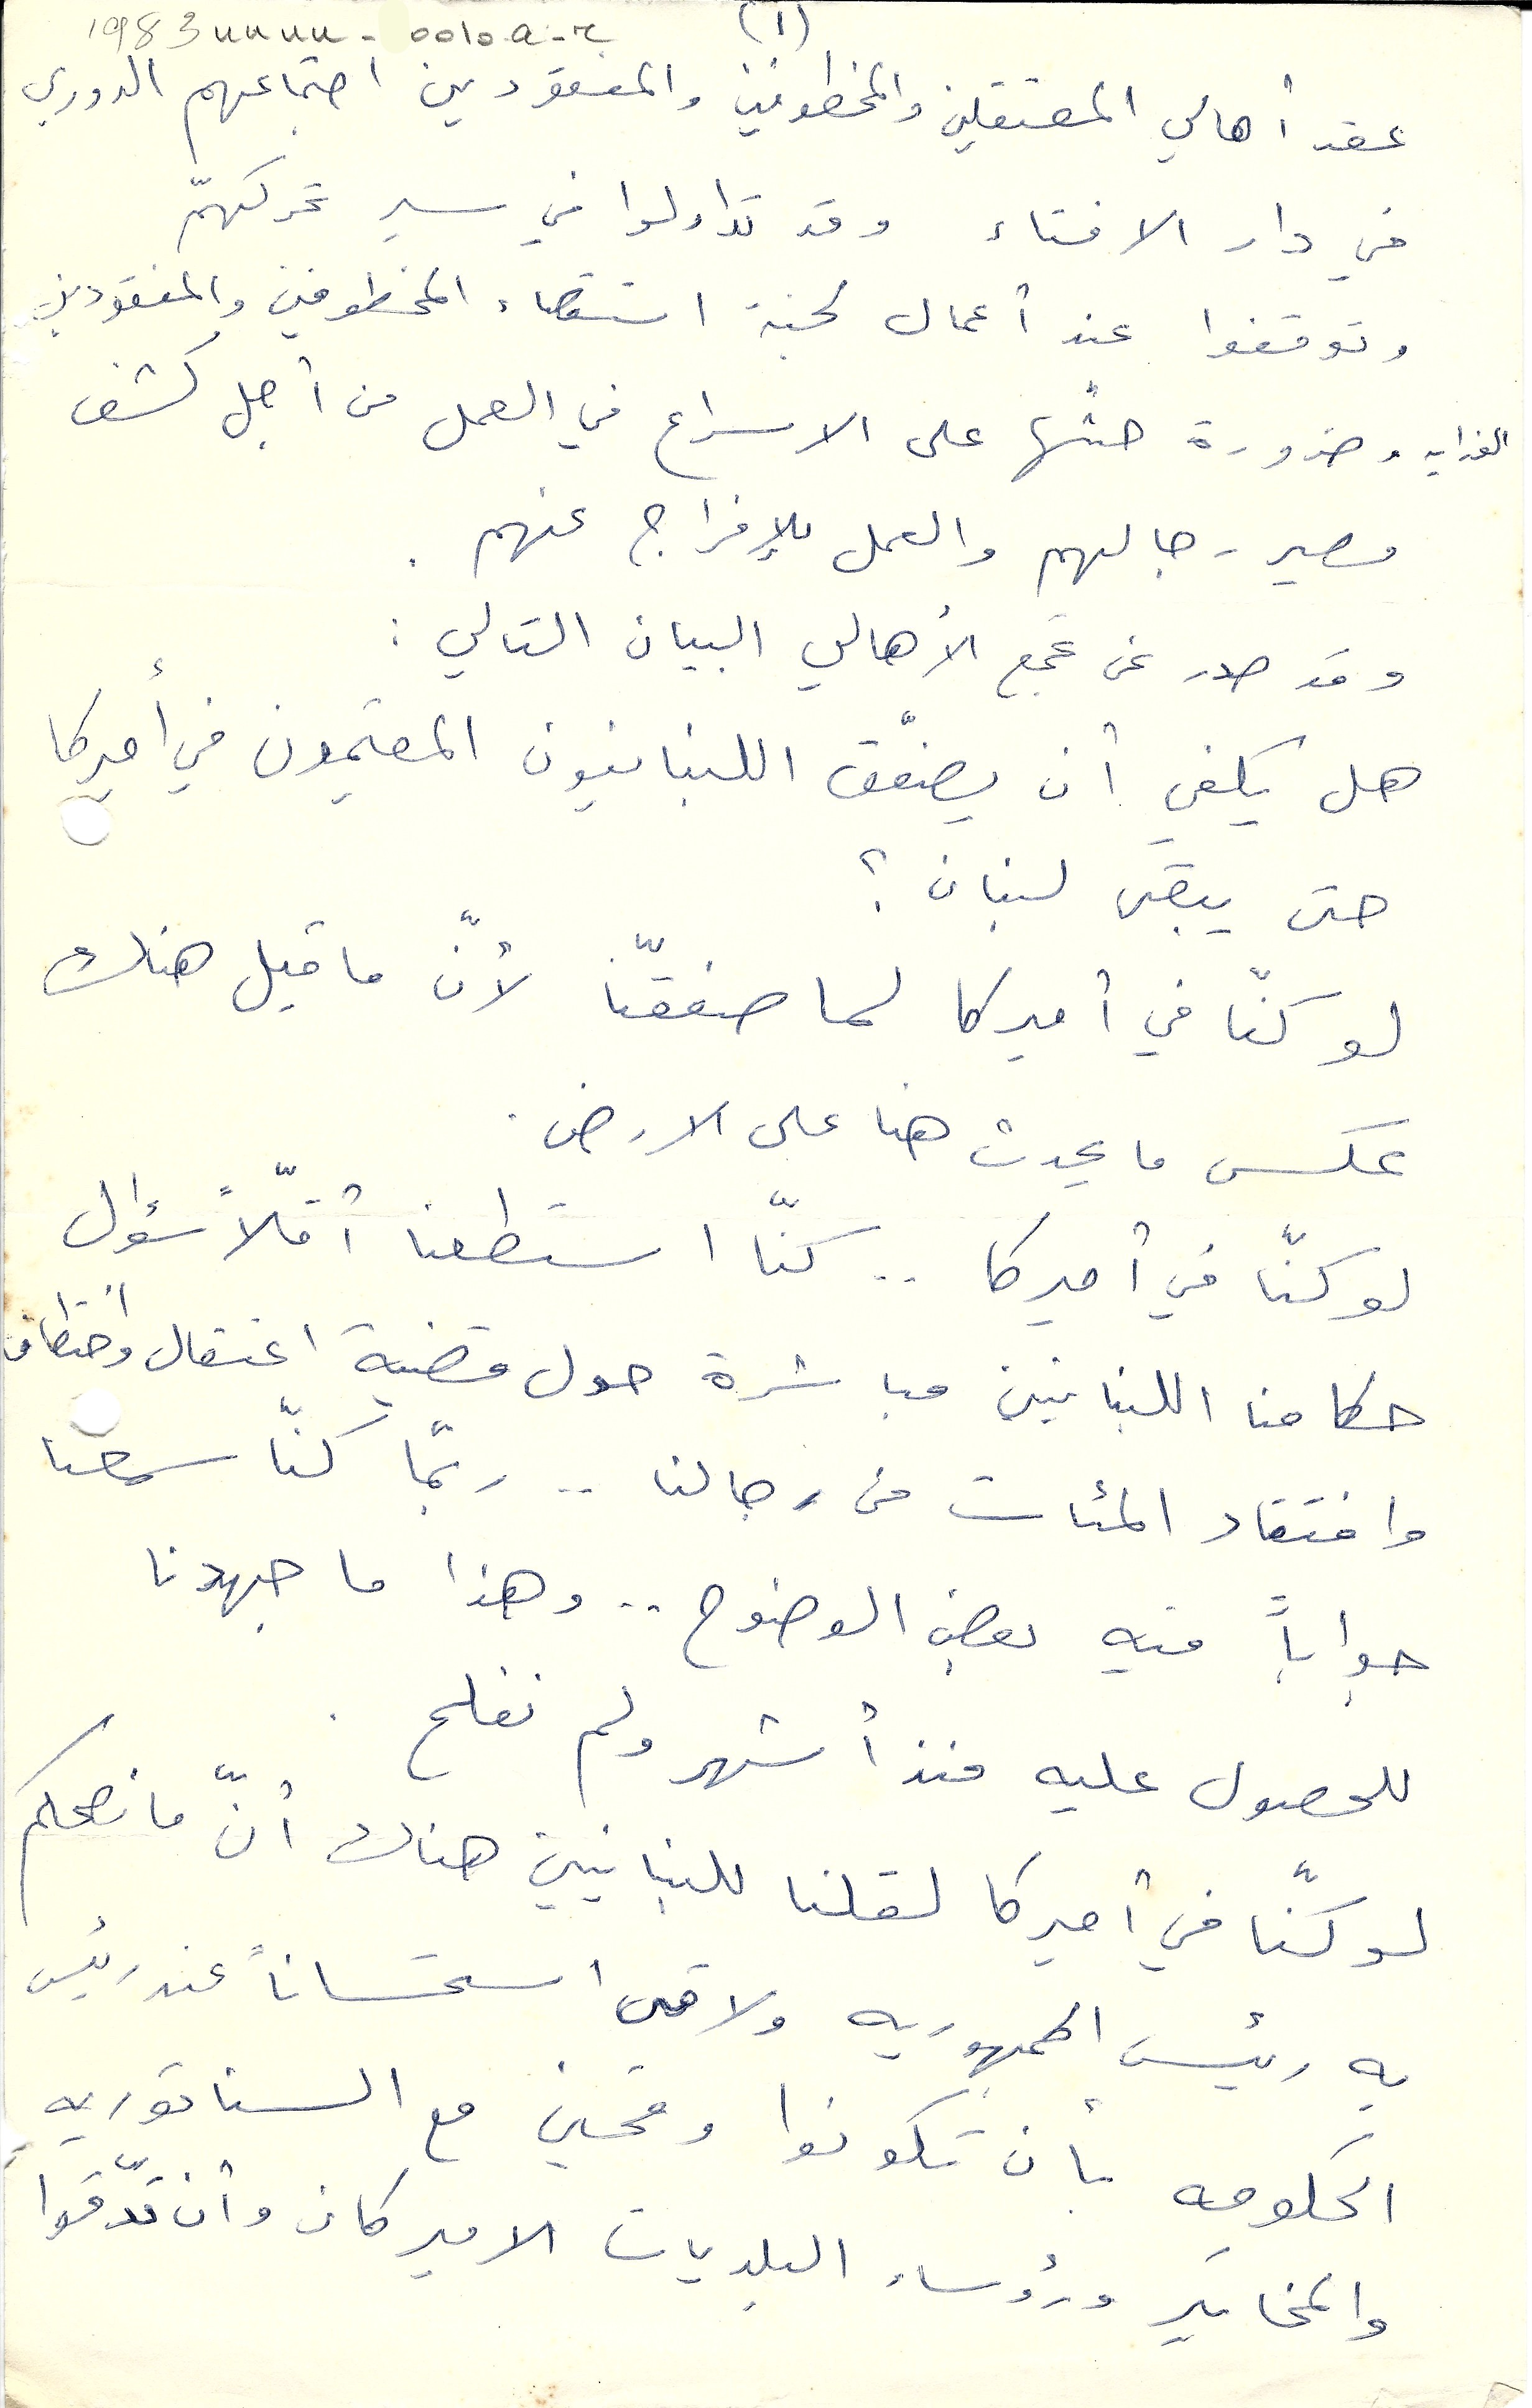 1983uuuu-0010.a-r
(١)
عقد أهالي المعتقلين والمخطوفين والمفقودين اجتماعهم الدوري
في دار الافتاء وقد تداولوا في سير تحركهمّ
وتوقفوا عند أعمال لجنة استقصاء المخطوفين والمفقودين
وضرورة حثّها على الاسراع في العمل من أجل كشف
مصير رجالهم والعمل للإفراج عنهم .
وقد صدر عن تجمع الأهالي البيان التالي :
هل يكفي أن يصفّق اللبنانيون المقيمون في أميركا
حتى يبقى لبنان ؟
لو كنّا في أميركا لما صفقّنا لأنّ ما قيل هناك
عكس ما يحدث هنا على الارض .
لو كنّا في أميركا .. كنّا استطعنا أقلّاً سؤال
حكامنا اللبنانيين مباشرة حول قضية اعتقال واختطاف
وافتقاد المئات من رجالنا .. ربّما كنّا سمعنا
جواباً فيه بعض الوضوح .. وهذا ما جهدنا
للحصول عليه منذ أشهر ولم نفلح .
لو كنّا في أميركا لقلنا للبنانيين هناك أنّ ما نصحكم
به رئيس الجمهوريه ولاقى استحساناً عند رئيس
الحكومه بأن تكونوا وقحين مع السناتوريه
والمخاتير ورؤساء البلديات الاميركان وأن تدّقوا